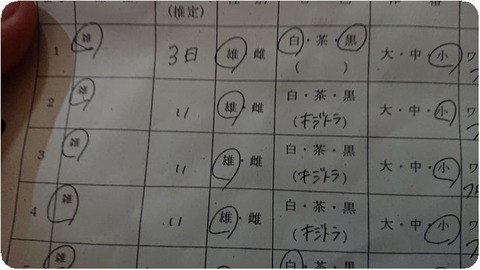 (推定)
1 雑 3日 雄・雌 白・茶・黒 大・中・小 ワ
( )
2 雑 〃 雄・雌 白・茶・黒 大・中・小 ワ
(キジトラ)
3 雑 〃 雄・雌 白・茶・黒 大・中・小 ワ
(キジトラ)
4 雑 〃 雄・雌 白・茶・黒 大・中・小 ワ
(キジトラ)
雑 白・茶・黒